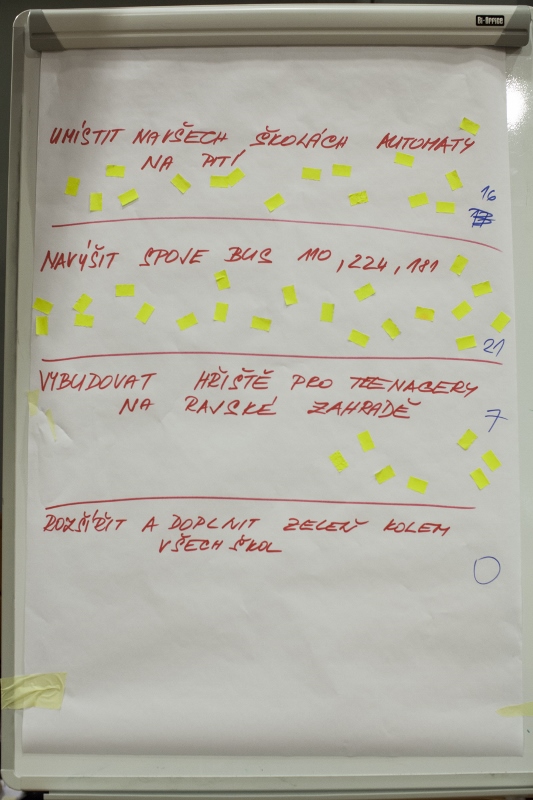 BI-OFFICE
UMÍSTIT NA VŠECH ŠKOLÁCH AUTOMATY
NA PITÍ
16
NAVÝŠIT SPOJE BUS 110, 224, 181
21
VYBUDOVAT HŘIŠTĚ PRO TEENAGERY
NA RAJSKÉ ZAHRADĚ
7
ROZŠÍŘIT A DOPLNIT ZELEŇ KOLEM
VŠECH ŠKOL
0